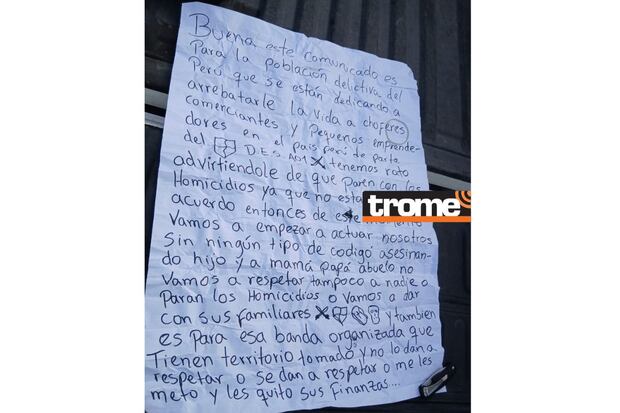 Buena este comunicado es
Para la población delictiva del
Perú que se están dedicando a
arrebatarle la vida a choferes
comerciantes y Pequeños emprende-
dores en el país perú de parte
del D.E.S AD1 tenemos rato
advirtiendole de que Paren con los
Homicidios ya que no esta
acuerdo entonces de este momento
Vamos a empezar a actuar nosotros
Sin ningún tipo de codigo asesinan-
do hijo y a mamá papá abuelo no
Vamos a respetar tampoco a nadie o
Paran los Homicidios o vamos a dar
con sus familiares y tambien
es Para esa banda organizada que
Tienen territorio tomado y no lo dan a
respetar o se dan a respetar o me les
meto y les quito sus Finanzas...
trome